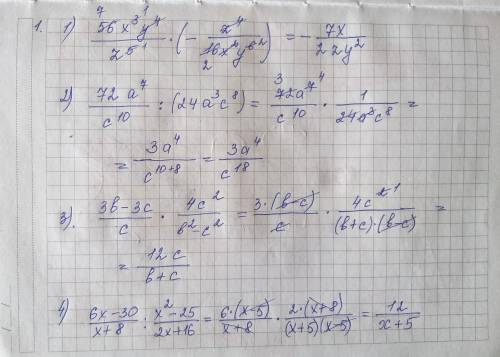 1. 1) 56x³y⁴/z⁵ · (− z⁴/16x²y⁶) = − 7x/2zy²
2) 72a⁷/c¹⁰ : (24a³c⁸) = 72a⁷/c¹⁰ · 1/24a³c⁸ =
= 3a⁴/c¹⁰⁺⁸ = 3a⁴/c¹⁸
3) (3b−3c)/c · 4c²/(b²−c²) = 3·(b−c)/c · 4c²/((b+c)·(b−c)) =
= 12c/(b+c)
4) (6x−30)/(x+8) : (x²−25)/(2x+16) = 6·(x−5)/(x+8) · 2·(x+8)/((x+5)(x−5)) = 12/(x+5)